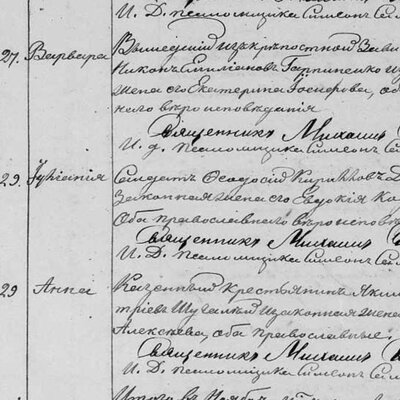 И. Д. псаломщика Симеон Сел
27. Варвара Вышедший из крѣпостной зави
Никон Емилианов Гаппиненко и
жена его Екатерина Іосифова, об
наго вѣроисповѣдания
Священник Михаил
И. д. псаломщика Симеон С
29. Іуліанія Солдат Феодосій Кириллов
Законная жена его Евдокія Ка
Оба православнаго вѣроисповѣ
Священник Михаил
И. Д. псаломщика Симеон Сел
29 Анна Казенный крестьянин Яким
триев Шугалий и законная жена
Алексѣева, оба православные.
Священник Михаил
И. Д. псаломщика Симеон Сел
Итого в Ноябрѣ